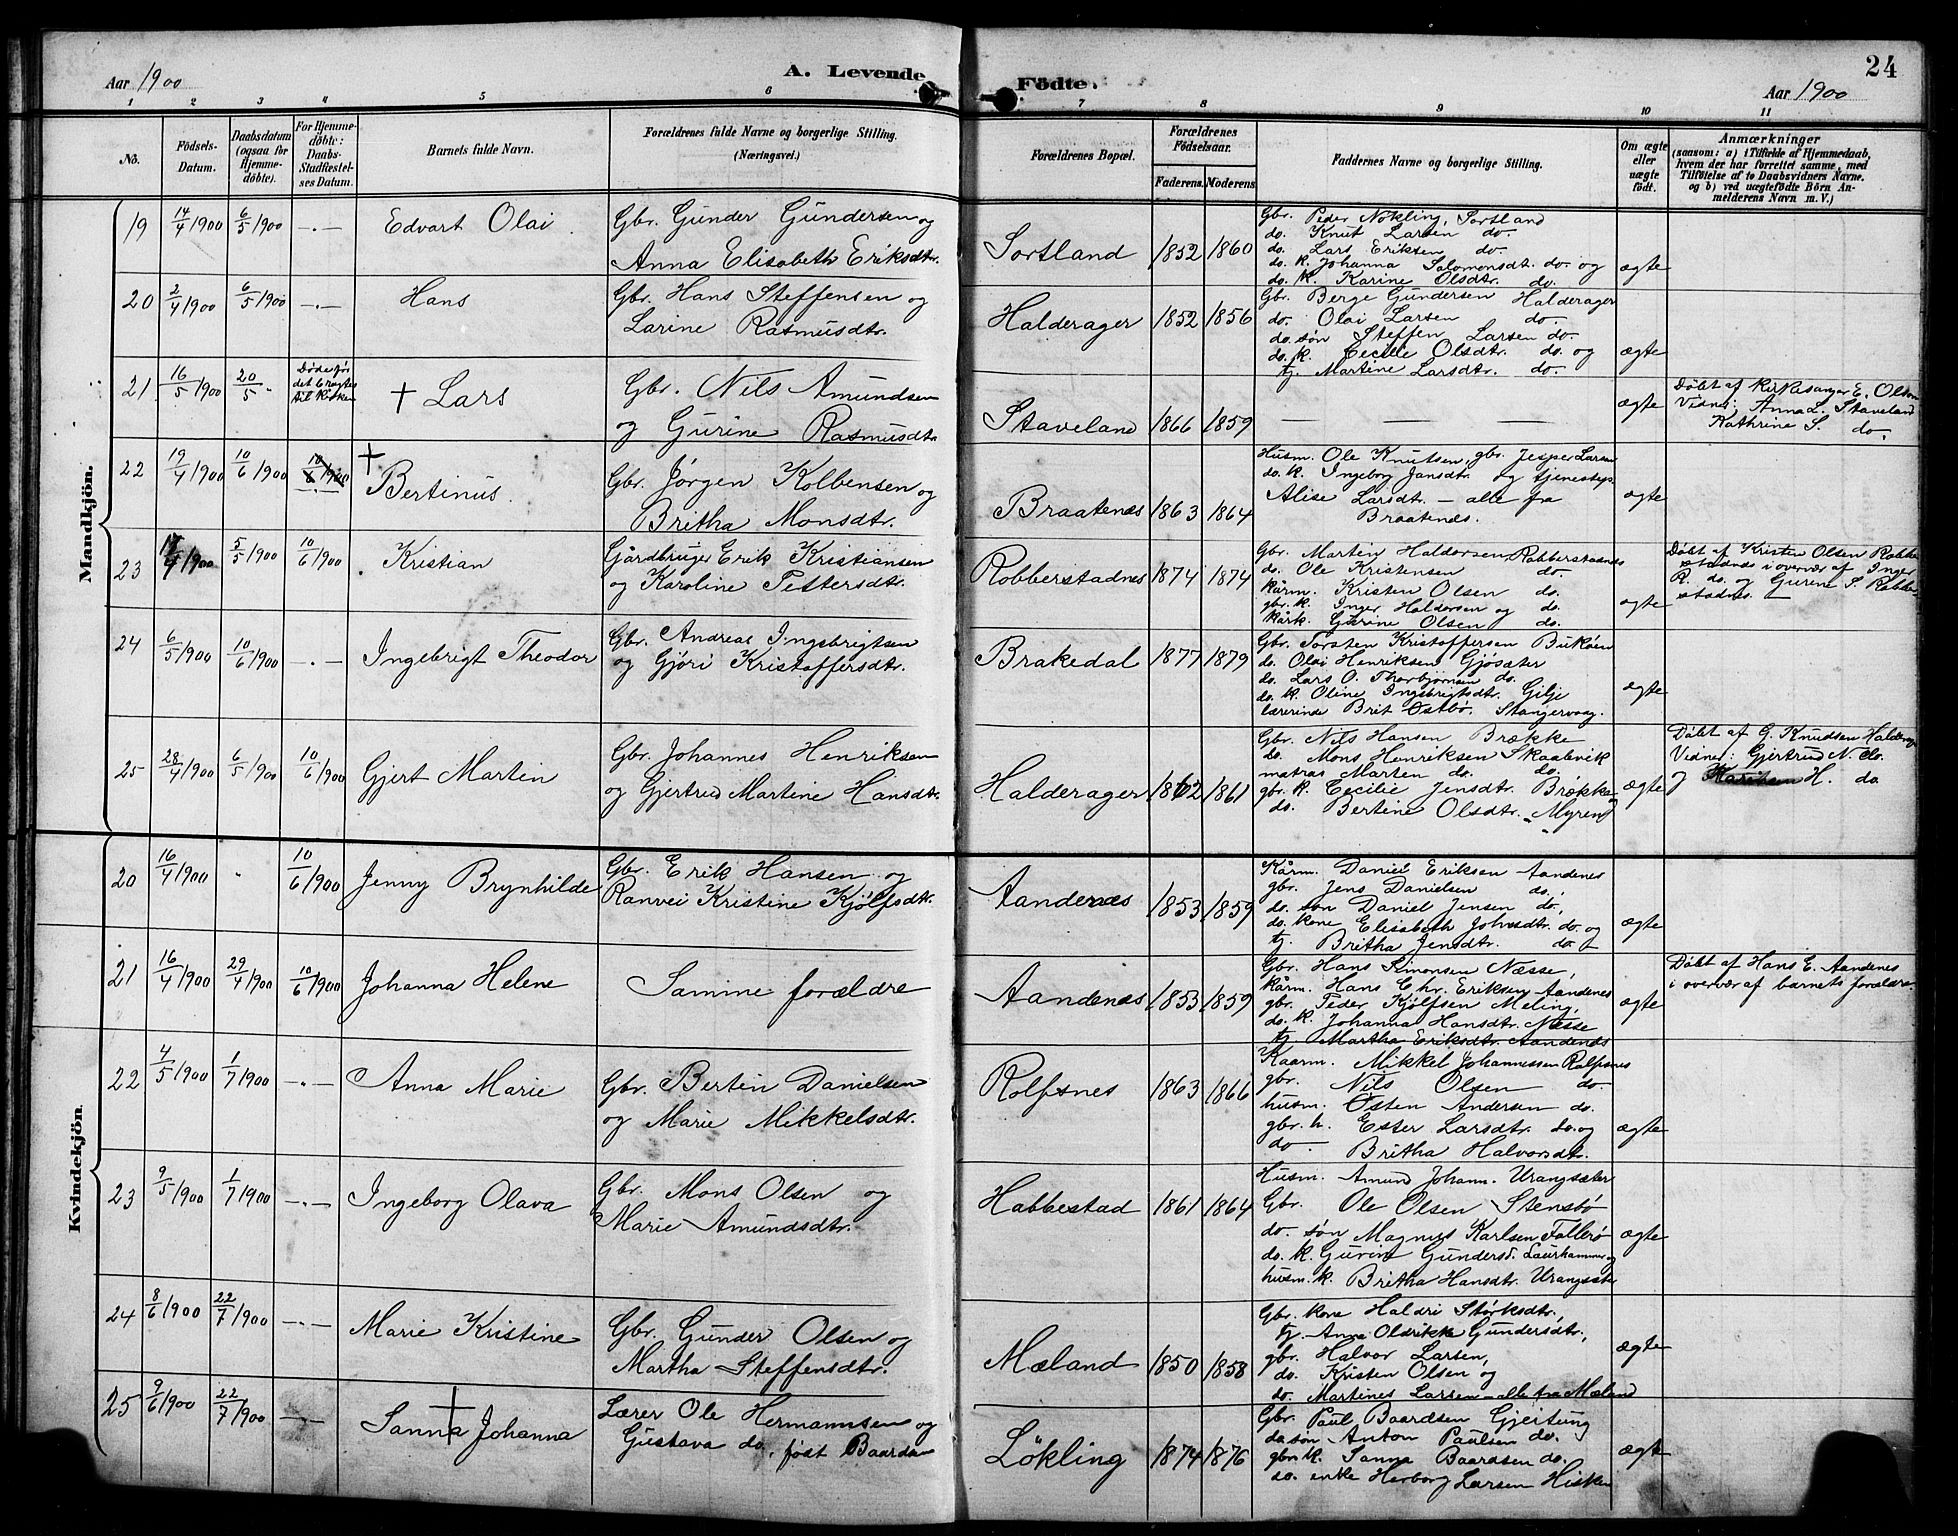 Aar 1900
A. Levende Födte.
24
Aar 1900
1 2 3 4 5 6 7 8 9 10 11
No.
Födsels-
Datum.
Daabsdatum
(ogsaa for
Hjemme-
döbte).
For Hjemme-
döbte:
Daabs-
Stadfæstel-
ses Datum.
Barnets fulde Navn.
Forældrenes fulde Navne og borgerlige Stilling.
(Næringsvei.)
Forældrenes Bopæl.
Forældrenes
Födselsaar.
Faderens. Moderens.
Faddernes Navne og borgerlige Stilling.
Om ægte
eller
uægte
födt.
Anmærkninger
(saasom: a) i Tilfælde af Hjemmedaab,
hvem der har forrettet samme, med
Tilföielse af to Daabsvidners Navne.
og b) ved uægtefödte Börn An-
melderens Navn m. V.)
Mandkjön.
19 14/4 1900 6/5 1900 -.- Edvart Olai
Gbr. Gunder Gundersen og
Anna Elisabeth Eriksdtr.
Sortland 1852 1860
Gbr. Peder Nökling, Sortland
do. Knut Larsen do.
do. Lars Eriksen do.
do. k. Johanna Salomonsdt. do. og
do. k. Karine Olsdtr. do.
ægte
20 2/4 1900 6/5 1900 -.- Hans
Gbr. Hans Steffensen og
Larine Rasmusdtr.
Halderager 1852 1856
Gbr. Berge Gundersen Halderager
do. Olai Larsen do.
do. søn Steffen Larsen do.
do. k. Cecilie Olsdtr. do. og
tj. Martine Larsdtr. do.
ægte
21 16/5 1900 20/5 "
Døde før
det bragtes
til Kirken
† Lars
Gbr. Nils Amundsen
og Gurine Rasmusdtr.
Staveland 1866 1859
— — — —
ægte
Døbt af kirkesanger E. Olsen
Vidner: Anna L. Staveland
Kathrine S. do.
22 19/4 1900 10/6 1900 10/6 1900 -.-
† Bertinus.
Gbr. Jørgen Kolbensen og
Britha Monsdtr.
Braatenæs 1863 1864
Husm. Ole Knutsen, gbr. Jesper Larsen
do. k. Ingeborg Jansdtr. og tjenestepi.
Alise Larsdtr. — alle fra
Braatenæs.
ægte
23 1900 5/5 1900 10/6 1900 Kristian
Gårdbruger Erik Kristiansen
og Karoline Pettersdtr.
Robberstadnes 1874 1874
Gbr. Martin Haldorsen Robberstadnes
do. Ole Kristensen do.
kårm. Kristen Olsen do.
gbr. k. Inger Haldorsen og do.
kårk. Gurine Olsen do.
ægte
Døbt af Kristen Olsen Robber
stadnes i overvær af Inger
R. do. og Gurine S. Robber
stadnes.
24 6/5 1900 10/6 1900 -.- Ingebrigt Theodor
Gbr. Andreas Ingebrigtsen
og Gjøri Kristoffersdtr.
Brakedal 1877 1879
Gbr. Torsten Kristoffersen Buköen
do. Olai Henriksen Gjösæter
do. Lars O. Thorbjørnsen do.
do. k. Oline Ingebrigtsdtr. Gilje
lærerinde Brit Östbö. Stangervaag.
ægte
25 28/4 1900 6/5 1900 10/6 1900 Gjert Martin
Gbr. Johannes Henriksen
og Gjertrud Martine Hansdtr.
Halderager 1862 1861
Gbr. Nils Hansen Brække
do. Mons Henriksen Skaabvik
matros Marten do. do.
gbr. k. Cecilie Jensdtr. Brække
do. Bertine Olsdtr. „Myren"
ægte
Døbt af G. Knudsen Halderager
Vidner: Gjertrud N. do.
H. do.
Kvindekjön.
20 16/4 1900 " 10/6 1900 Jenny Brynhilde
Gbr. Erik Hansen og
Ranvei Kristine Kjølfsdtr.
Aandenæs 1853 1859
Kårm. Daniel Eriksen Aandenes
gbr. Jens Danielsen do.
do. søn Daniel Jensen do.
do. kone Elisabeth Johnsdtr. do. og
tj. Britha Jensdtr. do.
ægte
21 16/4 1900 29/4 1900 10/6 1900 Johanna Helene
Samme forældre
Aandenæs 1853 1859
Gbr. Hans Simonsen Næsse,
kårm. Hans Chr. Eriksen Aandenes
gbr. Peder Kjølfsen Meling,
do. k. Johanna Hansdtr. Næsse
tj. Martha Eriksdtr. Aandenæs
ægte
Døbt af Hans E. Aandenes
i overvær af barnets forældre.
22 4/5 1900 1/7 1900 -.- Anna Marie
Gbr. Bertin Danielsen
og Marie Mikkelsdtr.
Rolfsnes 1863 1866
Kaarm. Mikkel Johannessen Rolfsnes
gbr. Nils Olsen do.
husm. Østen Andersen do.
gbr. h. Ester Larsdtr. do. og
do Britha Halvorsdtr.
ægte
23 9/5 1900 1/7 1900 -.- Ingeborg Olava
Gbr. Mons Olsen og
Marie Amundsdtr.
Habbestad 1861 1864
Husm. Amund Johann. Urangsæter
Gbr. Ole Olsen Stensbö
do. søn Magnus Karlsen Follerö
do. k. Gurine Gundersd. Laurhammer og
husm. k. Britha Hansdtr. Urangsæter
ægte
24 8/6 1900 22/7 1900 -.- Marie Kristine
Gbr. Gunder Olsen og
Martha Steffensdtr.
Mæland 1850 1858
Gbr. kone Haldri Störksdtr.,
tj. Anna Oldrikke Gundersdtr.,
gbr. Halvor Larsen,
do. Kristen Olsen og
do. Martines Larsen – alle fra Mæland
ægte
25 9/6 1900 22/7 1900 -.- † Sanna Johanna
Lærer Ole Hermannsen og
Gustava do. født Baardsen
Lökling 1874 1876
Gbr. Paul Baardsen Gjeitung
do søn Anton Paulsen do.
gbr. k. Sanna Baardsen do.
do. enke Herborg Larsen Hisken
ægte